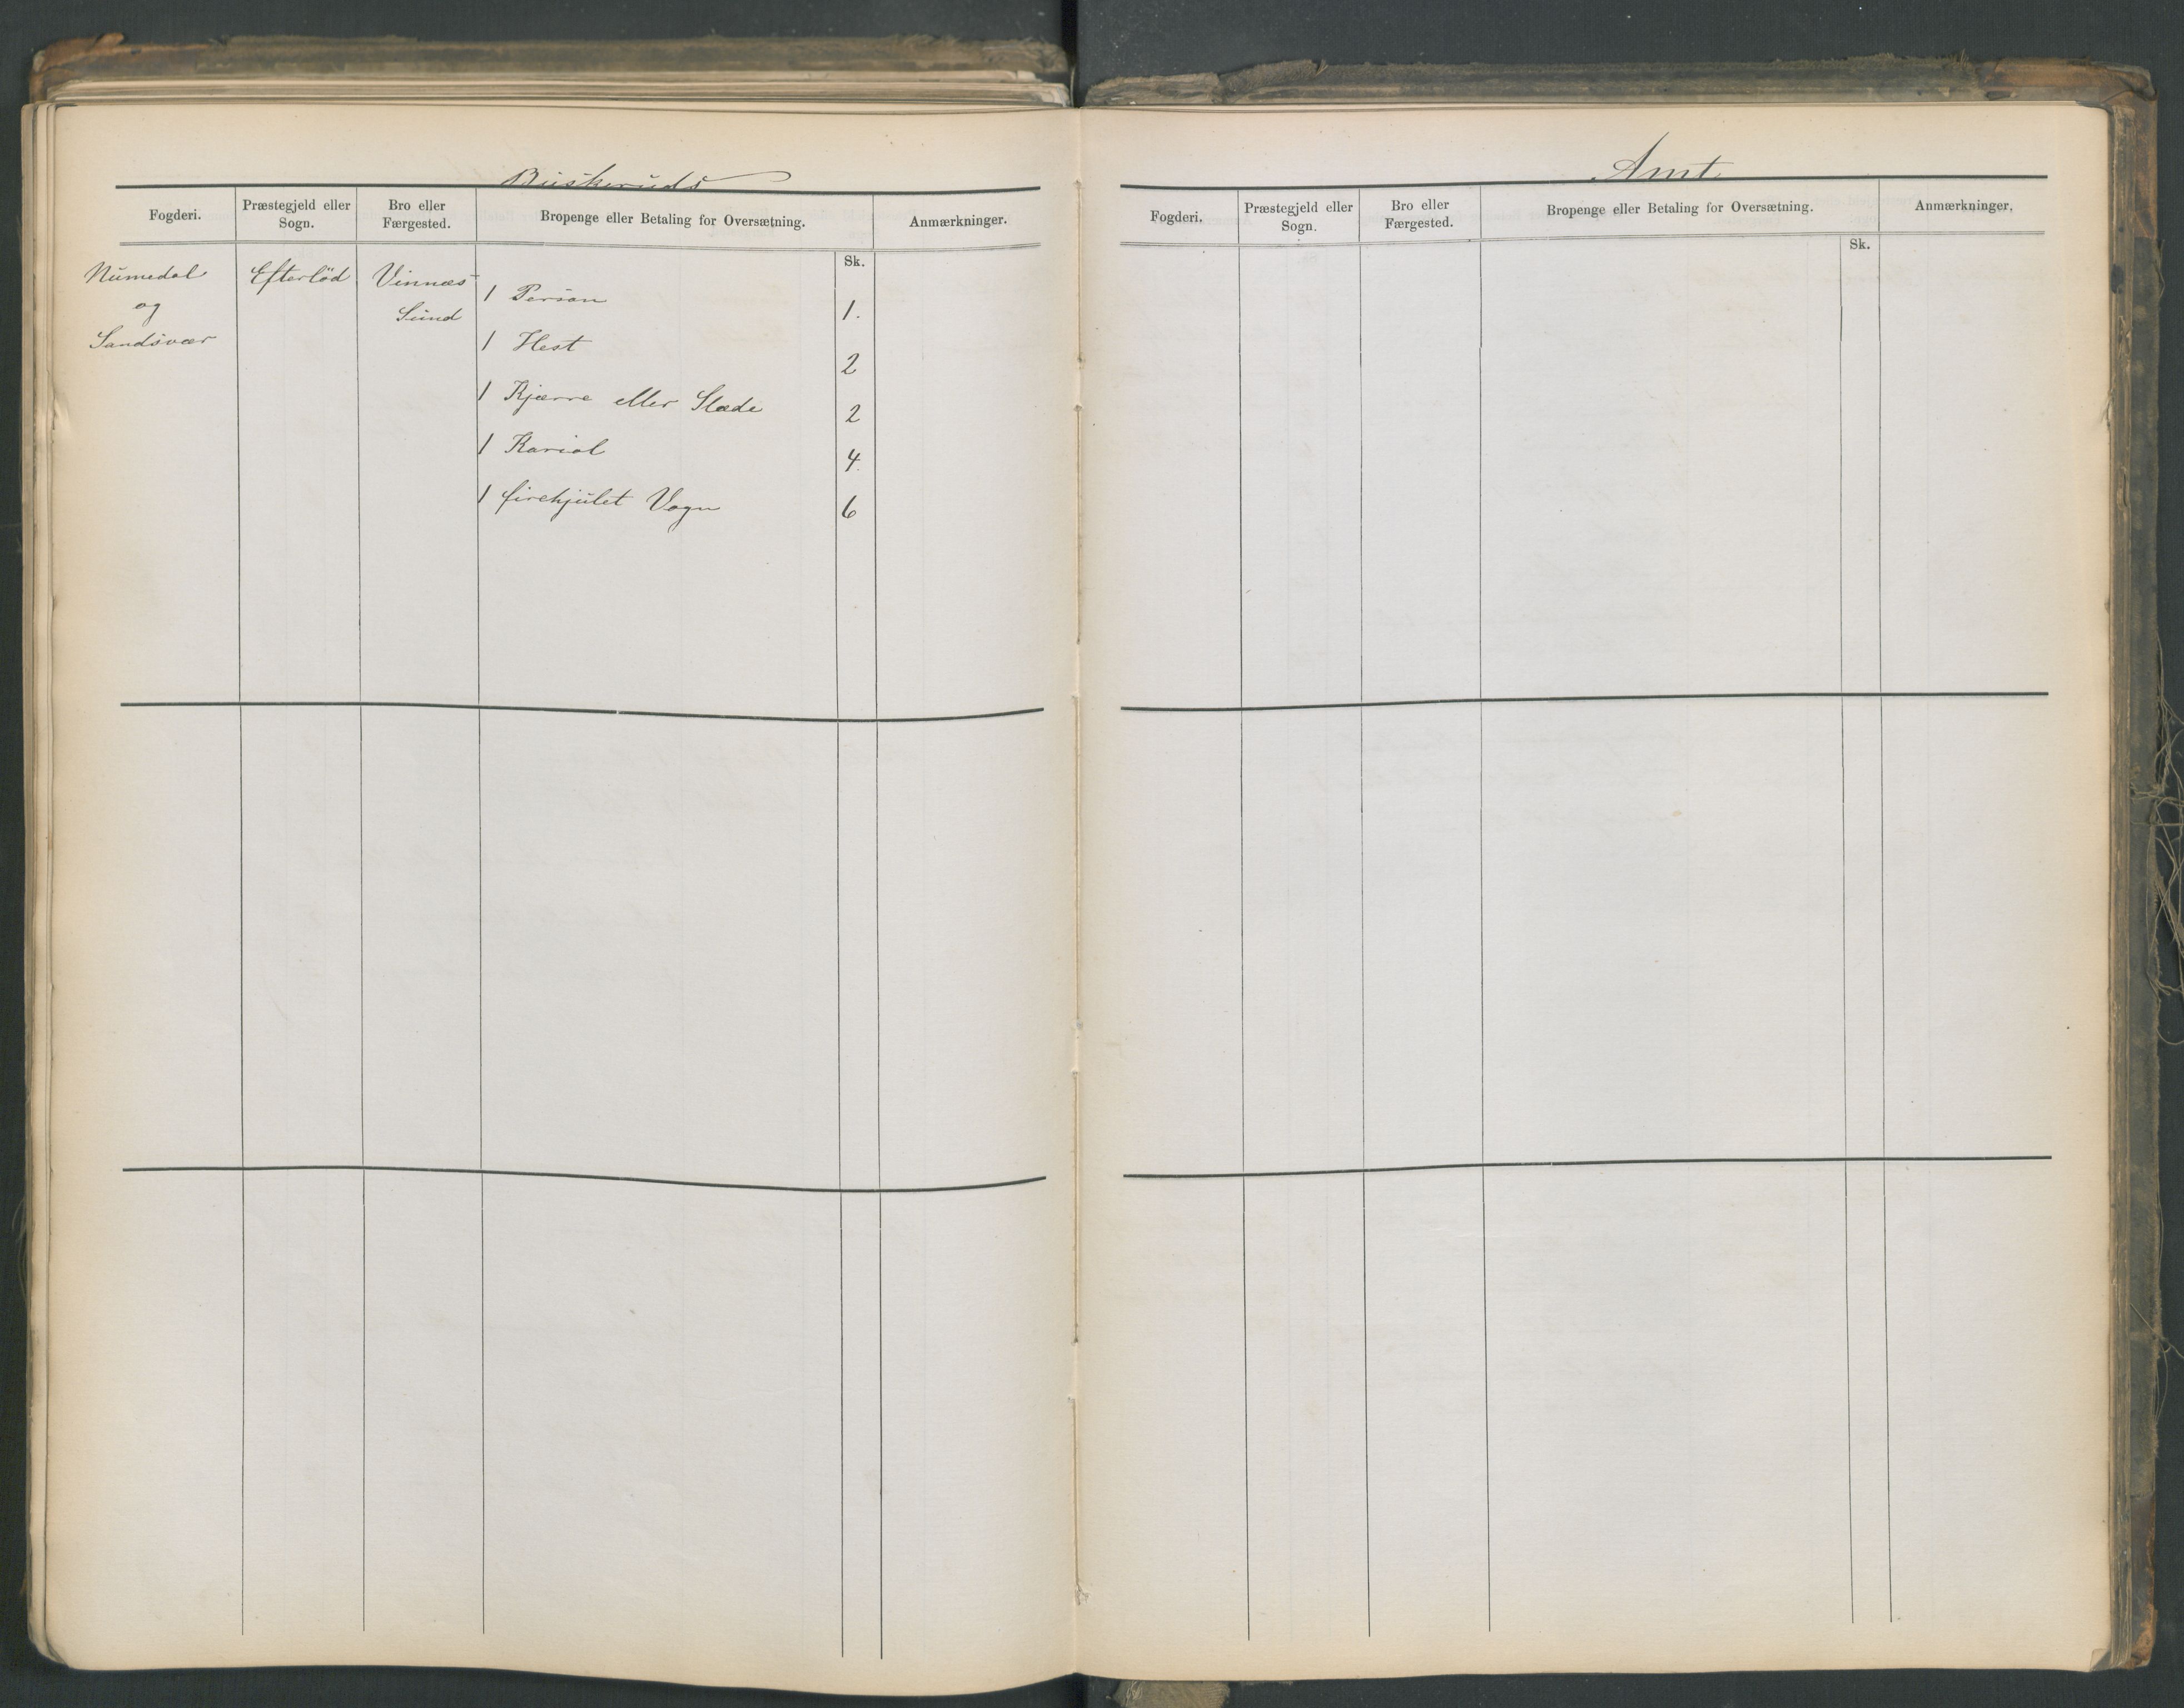 Buskeruds
Fogderi.
Præstegjeld eller
Sogn.
Bro eller
Færgested.
Bropenge eller Betaling for Oversætning.
Anmærkninger.
Sk.
Numedal
og
Sandsvær
Efterlöd
Vinnæs-
Sund
1 Person 1.
1 Hest 2
1 Kjærre eller Slæde 2
1 Kariol 4.
1 firehjulet Vogn 6
Amt
Fogderi.
Præstegjeld eller
Sogn.
Bro eller
Færgested.
Bropenge eller Betaling for Oversætning.
Anmærkninger.
Sk.